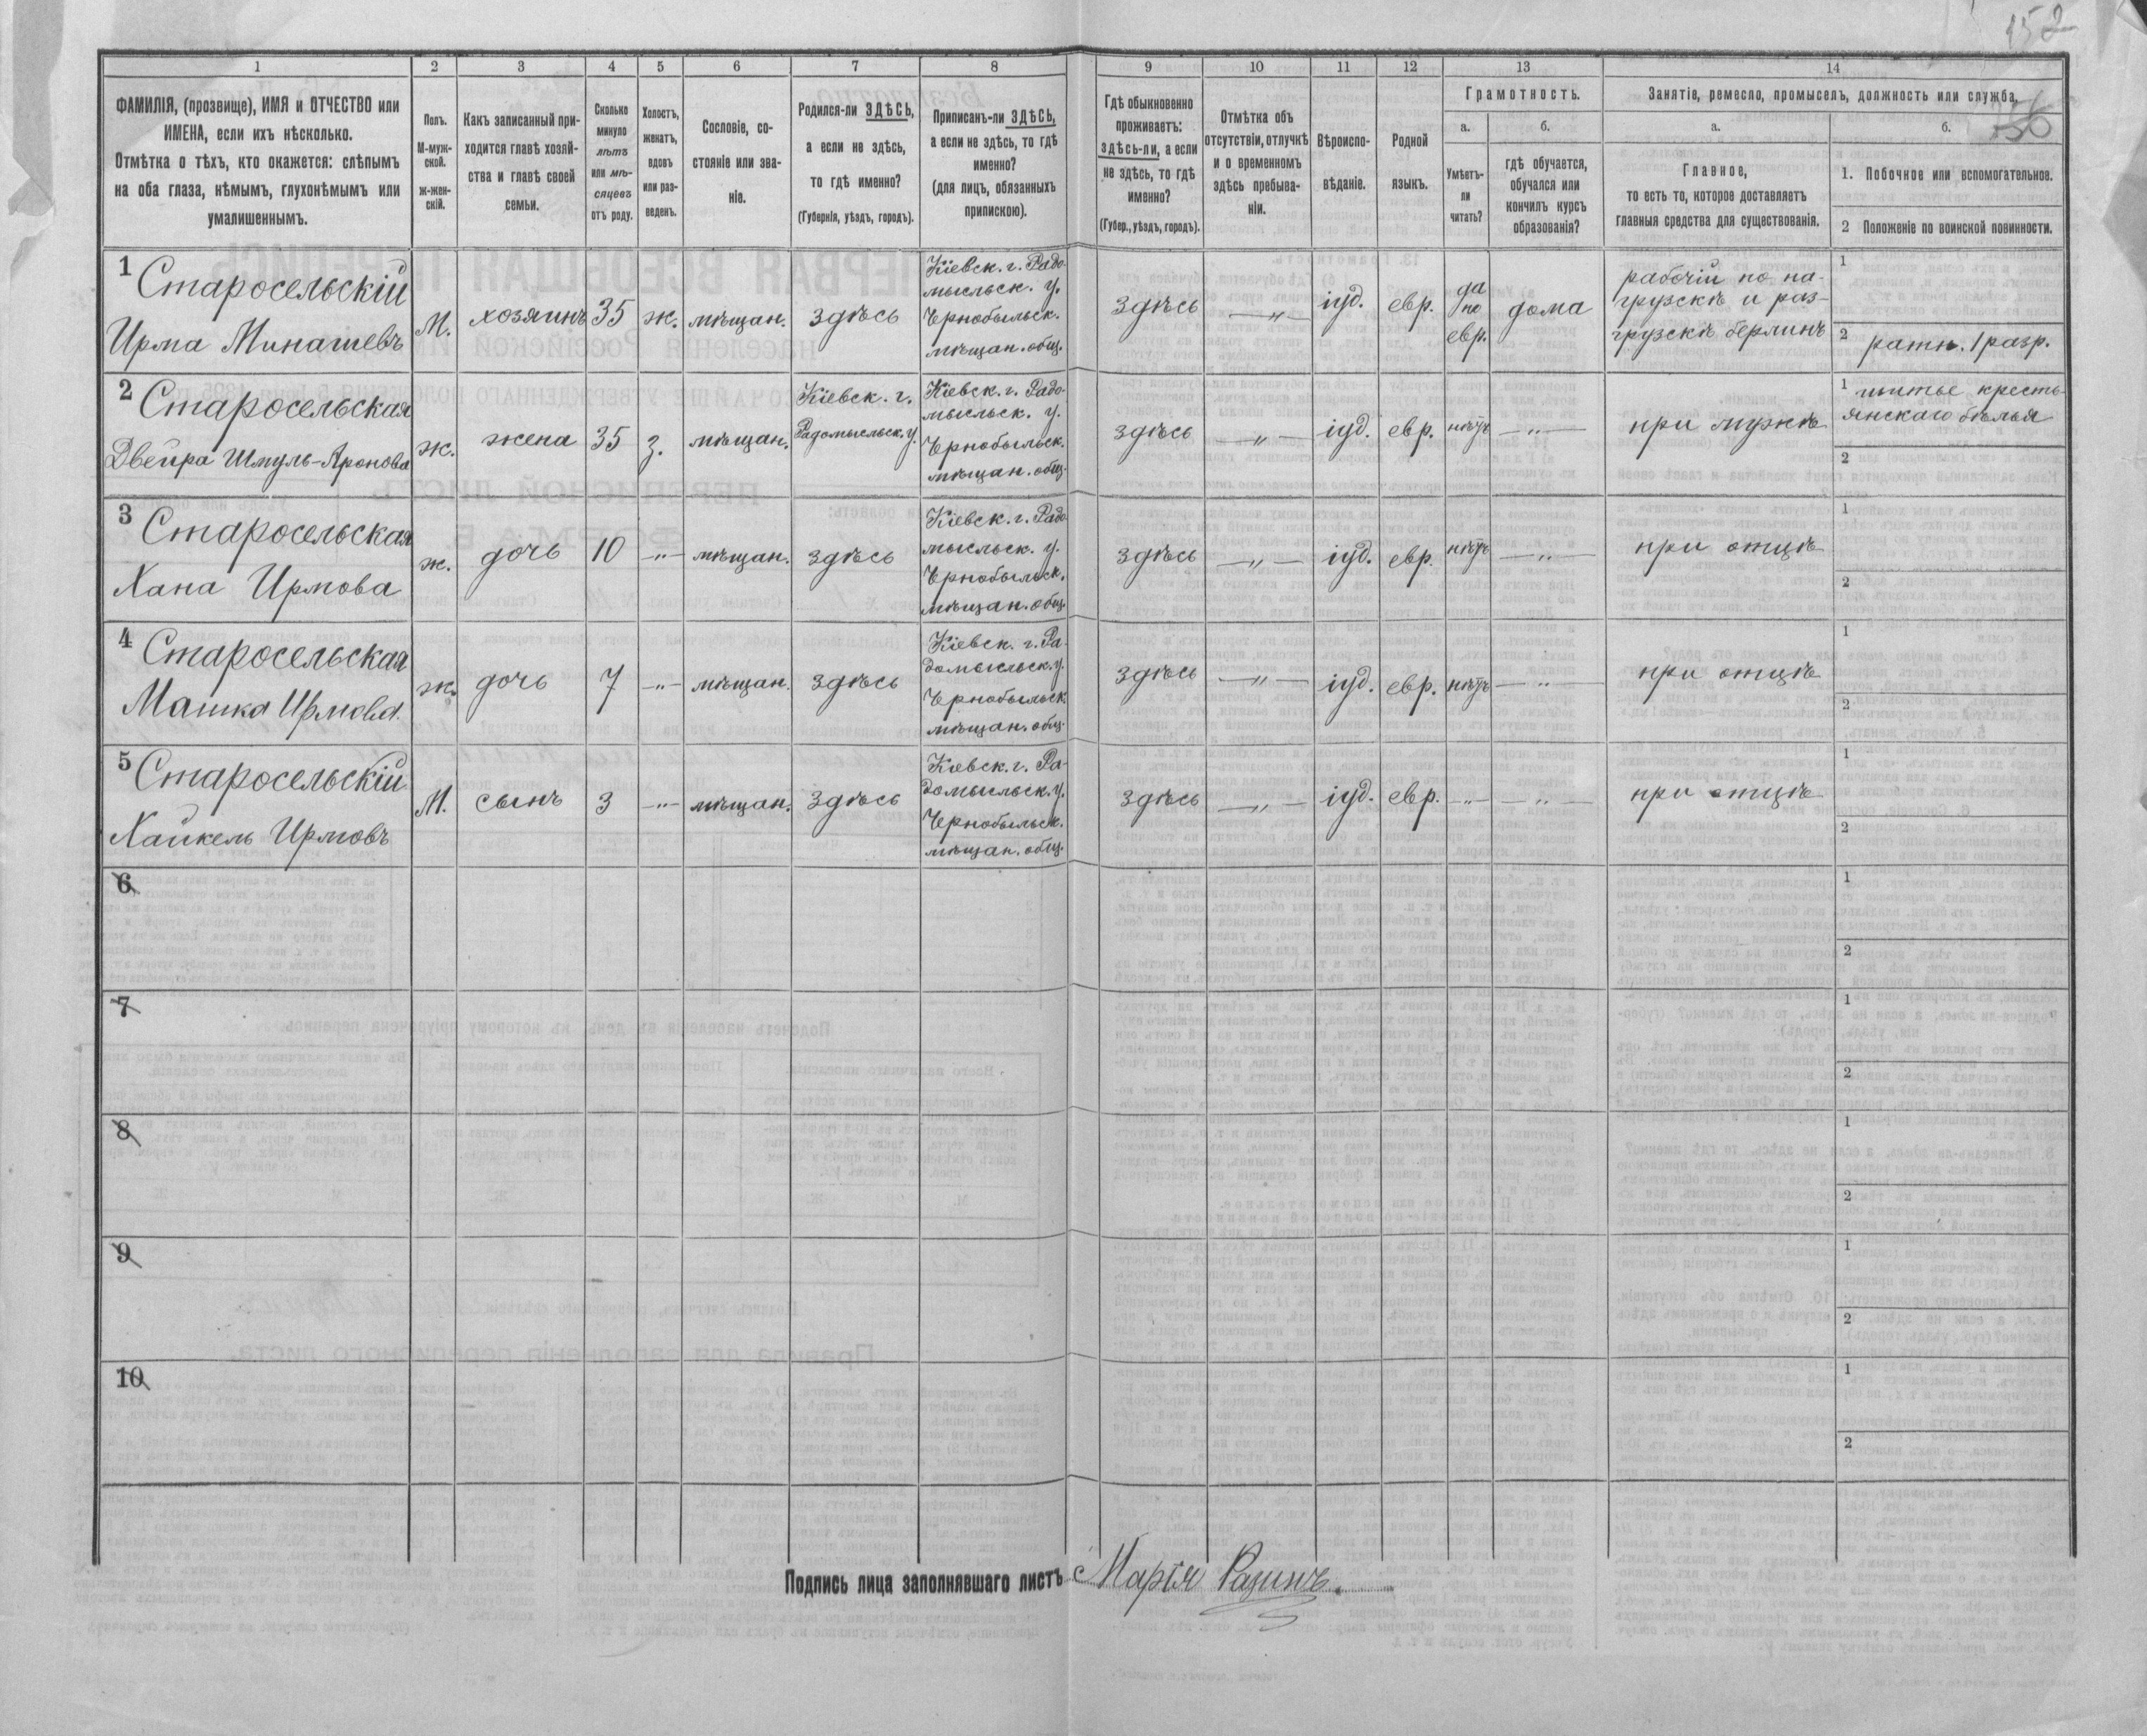 152
56
1 2 3 4 5 6 7 8 9 10 11 12 13 14
ФАМИЛІЯ, (прозвище), ИМЯ и ОТЧЕСТВО или
ИМЕНА, если ихъ нѣсколько.
Отмѣтка о тѣхъ, кто окажется: слѣпымъ
на оба глаза, нѣмымъ, глухонѣмымъ или
умалишеннымъ.
Полъ.
М-муж-
ской.
ж-жен-
скій.
Какъ записанный при-
ходится главѣ хозяй-
ства и главѣ своей
семьи.
Сколько
минуло
лѣтъ
или мѣ-
сяцевъ
отъ роду.
Холостъ,
женатъ,
вдовъ
или раз-
веденъ.
Сословіе, со-
стояніе или зва-
ніе.
Родился-ли ЗДѢСЬ,
а если не здѣсь,
то гдѣ именно?
(Губернія, уѣздъ, городъ).
Приписанъ-ли ЗДѢСЬ,
а если не здѣсь, то гдѣ
именно?
(для лицъ, обязанныхъ
припискою).
Гдѣ обыкновенно
проживаетъ:
здѣсь-ли, а если
не здѣсь, то гдѣ
именно?
(Губер., уѣздъ, городъ).
Отмѣтка объ
отсутствіи, отлучкѣ
и о временномъ
здѣсь пребыва-
ніи.
Вѣроиспо-
вѣданіе.
Родной
языкъ.
Грамотность.
а.
Умѣетъ-
ли
читать?
б.
гдѣ обучается,
обучался или
кончилъ курсъ
образованія?
Занятіе, ремесло, промыселъ, должность или служба.
а.
Главное,
то есть то, которое доставляетъ
главныя средства для существованія.
б.
1. Побочное или вспомогательное.
2 Положеніе по воинской повинности.
1
Старосельскій
Ирма Минашевъ
М.
хозяинъ
35
ж.
мѣщан.
здѣсь
Кіевск. г. Радо-
мысльск. у.
Чернобыльск.
мѣщан. общ.
здѣсь
—„—
іуд.
евр.
да
по
евр.
дома
рабочій по на-
грузкѣ и раз-
грузскѣ берлинъ
1
2 ратн. 1 разр.
2
Старосельская
Двейра Шмуль-Аронова
ж.
жена
35
з.
мѣщан.
Кіевск. г.
Радомысльск. у.
Кіевск. г. Радо-
мысльск. у.
Чернобыльск.
мѣщан. общ.
здѣсь
—„—
іуд.
евр.
нѣтъ
—„—
при мужѣ
1 шитье кресть-
янскаго бѣлья
2
3
Старосельская
Хана Ирмова
ж.
дочь
10
—„—
мѣщан.
здѣсь
Кіевск. г. Радо-
мысльск. у.
Чернобыльск.
мѣщан. общ.
здѣсь
—„—
іуд.
евр.
нѣтъ
—„—
при отцѣ
1
2
4
Старосельская
Машка Ирмова.
ж.
дочь
7
—„—
мѣщан.
здѣсь
Кіевск. г. Ра-
домысльск. у.
Чернобыльск.
мѣщан. общ.
здѣсь
—„—
іуд.
евр.
нѣтъ
—„—
при отцѣ
1
2
5
Старосельскій
Хайкель Ирмовъ
М.
сынъ
3
—„—
мѣщан.
здѣсь
Кіевск. г. Ра-
домысльск. у.
Чернобыльск.
мѣщан. общ.
здѣсь
—„—
іуд.
евр.
—„—
—„—
при отцѣ
1
2
6
1
2
7
1
2
8
1
2
9
1
2
10
1
2
Подпись лица заполнявшаго листъ Марія